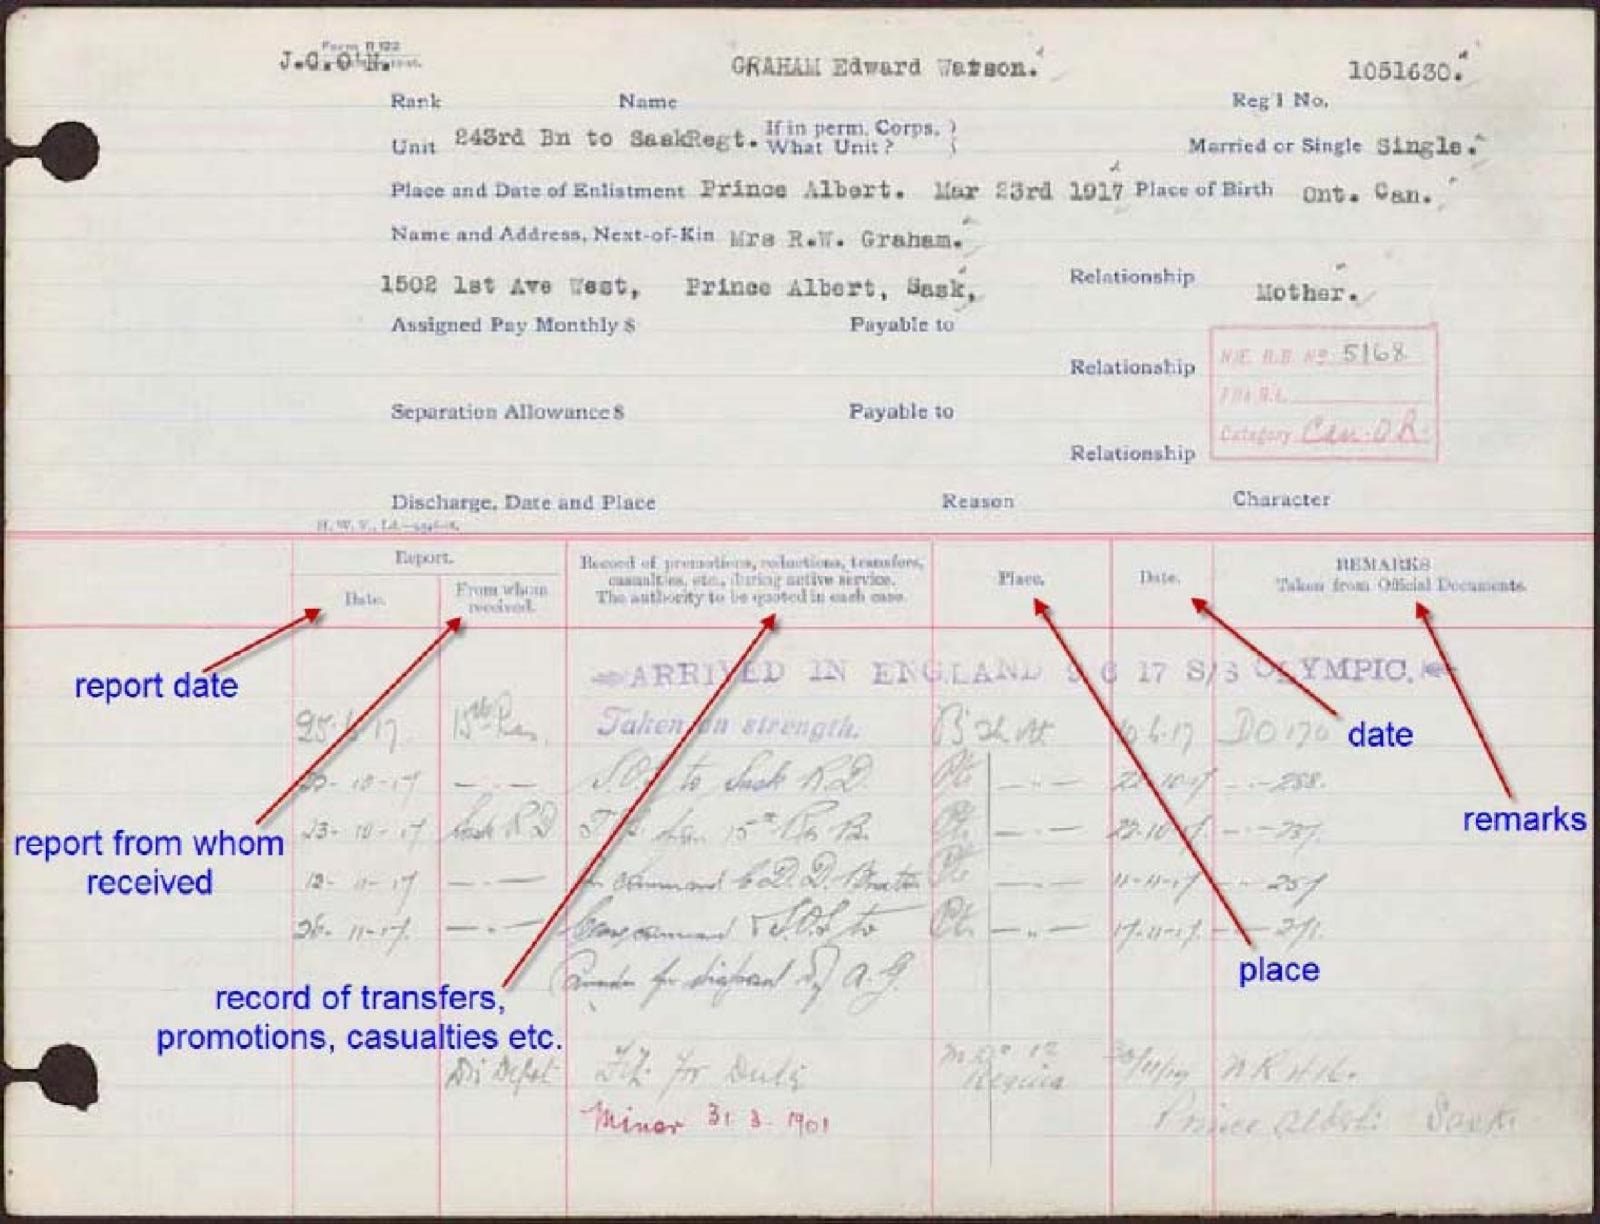 Form R 122
J.C.O'N.
GRAHAM Edward Watson.
1051630.
Rank Name Reg'l No.
Unit 243rd Bn to SaskRegt. If in perm. Corps, What Unit? Married or Single Single.
Place and Date of Enlistment Prince Albert. Mar 23rd 1917 Place of Birth Ont. Can.
Name and Address, Next-of-Kin Mrs R.W. Graham.
1502 1st Ave West, Prince Albert, Sask, Relationship Mother.
Assigned Pay Monthly $ Payable to
Relationship
5168
Category Can. O.R.
Separation Allowance $ Payable to
Relationship
Discharge, Date and Place Reason Character
Report.
Date. From whom received.
Record of promotions, reductions, transfers,
casualties, etc., during active service.
The authority to be quoted in each case.
Place. Date.
REMARKS
Taken from Official Documents.
ARRIVED IN ENGLAND 9 6 17 S/S OLYMPIC.
25-6-17. 15th Res. Taken on strength. 6.17 DO 170
10-17 S.O.S. to Sask R.D. 288.
23-10-17 Sask R.D. 15th Res. B. 22.10.17
12-11-17 command C.D.D. 11-11-17 257
26-11-17. command & S.O.S. to 17-11-17. 271.
for disposal A.G.
Dis Depot Fit for Duty Regina
Minor 31 3 1901
Prince Albert Sask
report date
report from whom
received
record of transfers,
promotions, casualties etc.
place
date
remarks